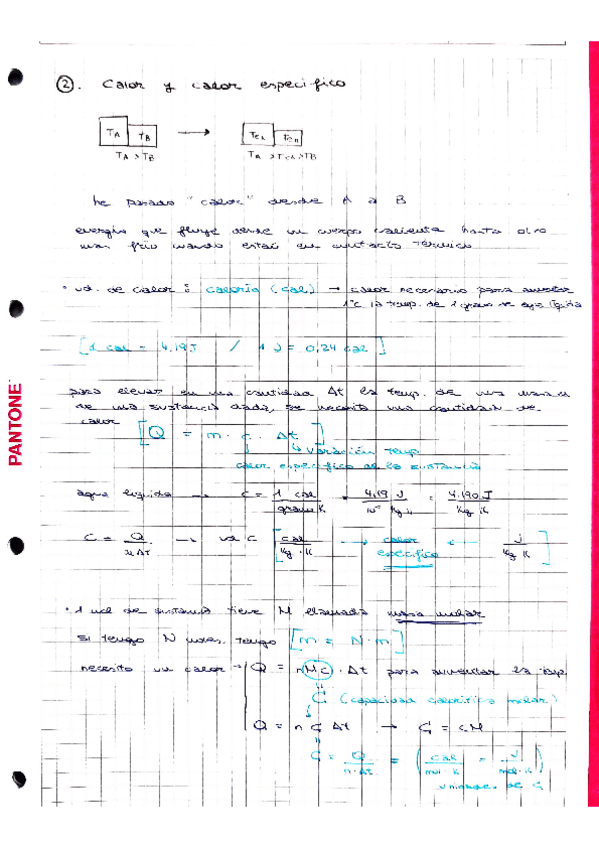 ②. Calor y calor especifico
TA TB → TeA TeB
TA > TB TA > TeA > TB
he pasado "calor" desde A a B
energía que fluye desde un cuerpo caliente hasta otro
mas frío cuando están en contacto térmico
• ud. de calor : caloría (cal) → calor necesario para aumentar
1°C la temp. de 1 gramo de agua líquida
[1 cal = 4,19 J / 1 J = 0,24 cal]
para elevar en una cantidad Δt la temp. de una masa m
de una sustancia dada, se necesita una cantidad de
calor [Q = m · c · Δt]
↳ variación temp.
calor específico de la sustancia
agua líquida → c = 1 cal / gramo K = 4,19 J / 10⁻³ kg K = 4.190 J / kg K
c = Q / m ΔT → ud c [cal / kg · K → calor específico ← J / kg K]
• 1 mol de sustancia tiene M llamada masa molar
Si tengo N moles, tengo [m = N · m]
necesito un calor → Q = n(Mc) · Δt para aumentar la temp.
C (capacidad calorífica molar)
Q = n C Δt → C = cM
C = Q / n · Δt = (cal / mol · K = J / mol · K)
unidades de C
PANTONE